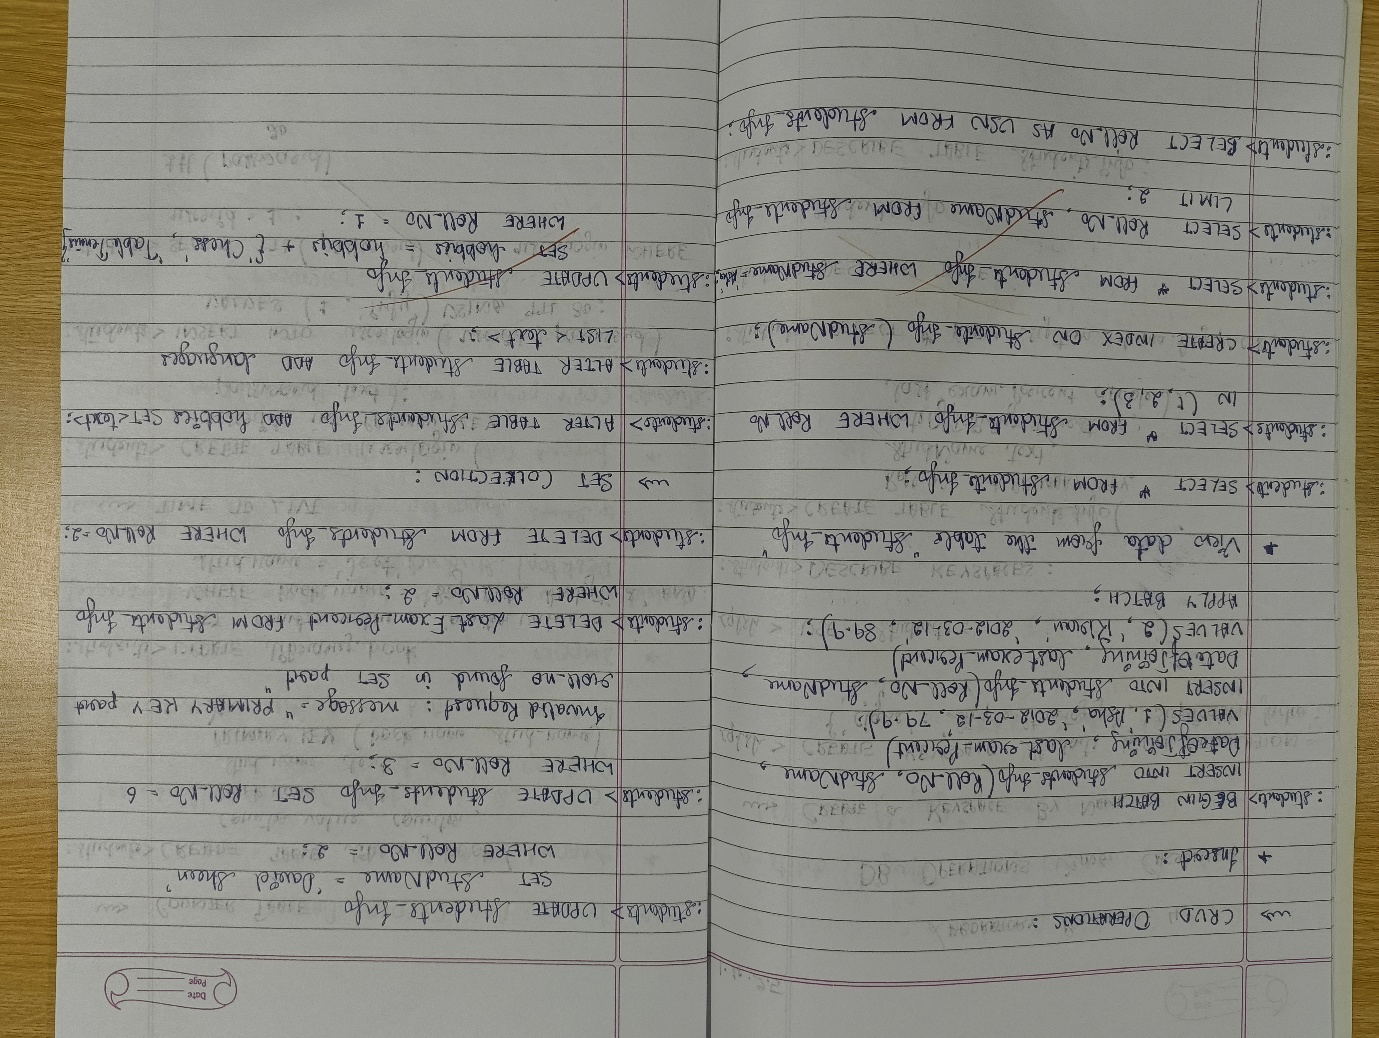 ⇒ CRUD OPERATIONS :
* Insert :
:students> BEGIN BATCH
INSERT INTO Students_Info (Roll_No, StudName,
DateOfJoining, last_exam_Percent)
VALUES (1, 'Asha', '2012-03-12', 79.9);
INSERT INTO Students_Info (Roll_No, StudName,
DateOfJoining, last_exam_Percent)
VALUES (2, 'Kiran', '2012-03-12', 89.9);
APPLY BATCH ;
* View data from the table "Students_Info"
:students> SELECT * FROM Students_Info ;
:students> SELECT * FROM Students_Info WHERE Roll_No
IN (1, 2, 3);
:students> CREATE INDEX ON Students_Info (StudName);
:students> SELECT * FROM Students_Info WHERE StudName =
:students> SELECT Roll_No, StudName FROM Students_Info
LIMIT 2;
:students> SELECT Roll_No AS USN FROM Students_Info;
Date
Page
:students> UPDATE Students_Info
SET StudName = 'David Sheen'
WHERE Roll_No = 2;
:students> UPDATE Students_Info SET Roll_No = 6
WHERE Roll_No = 3;
Invalid Request : message = "PRIMARY KEY part
roll_no found in SET part"
:students> DELETE Last_Exam_Percent FROM Students_Info
WHERE Roll_No = 2;
:students> DELETE FROM Students_Info WHERE Roll_No = 2;
⇒ SET COLLECTION :
:students> ALTER TABLE Students_Info ADD hobbies SET<text>;
:students> ALTER TABLE Students_Info ADD languages
LIST <text>;
:students> UPDATE Students_Info
SET hobbies = hobbies + {'Chess', 'Table Tennis'}
WHERE Roll_No = 1;